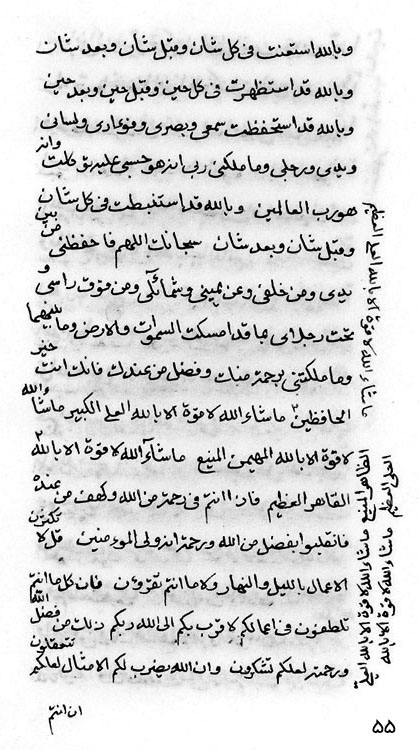 وبالله استعنت فی کل شان وقبل شان وبعد شان
وبالله قد استظهرت فی کل حین وقبل حین وبعد حین
وبالله قد استحفظت سمعی وبصری وفوءادی ولسانی
ویدی ورجلی وما ملکنی ربی انه هو حسبی علیه توکلت وانه
هو رب العالمین وبالله قد استنبطت فی کل شان
وقبل شان وبعد شان سبحانک اللهم فاحفظنی من بین
یدی ومن خلفی وعن یمینی وشمائلی ومن فوق راسی و
تحت رجلی ما قد امسکت السموات والارض وما بینهما
وما ملکتنی برحمة منک وفضل من عندک فانک انت خیر
الحافظین ما شاء الله لا قوة الا بالله العلی الکبیر ما شاء الله
لا قوة الا بالله المهیمن المنیع ما شاء الله لا قوة الا بالله
القاهر العظیم فاذا انتم فی رحمة من الله وکهف من عنده
فانقلبوا بفضل من الله ورحمة انه ولی الموءمنین قل لا تکونن
الاعمال باللیل والنهار وکلما انتم تقرون فان کل ما انتم
تلطفون فی اعمالکم لاقرب بکم الی الله ربکم ذلک من فضل الله
ورحمة لعلکم تشکرون وان الله یضرب لکم الامثال لعلکم تتعقلون
ان انتم
ما شاء الله لا قوة الا بالله العلی العظیم
الظاهر المنیع ما شاء الله لا قوة الا بالله العلی
العلی العظیم ما شاء الله لا قوة الا بالله
۵۵